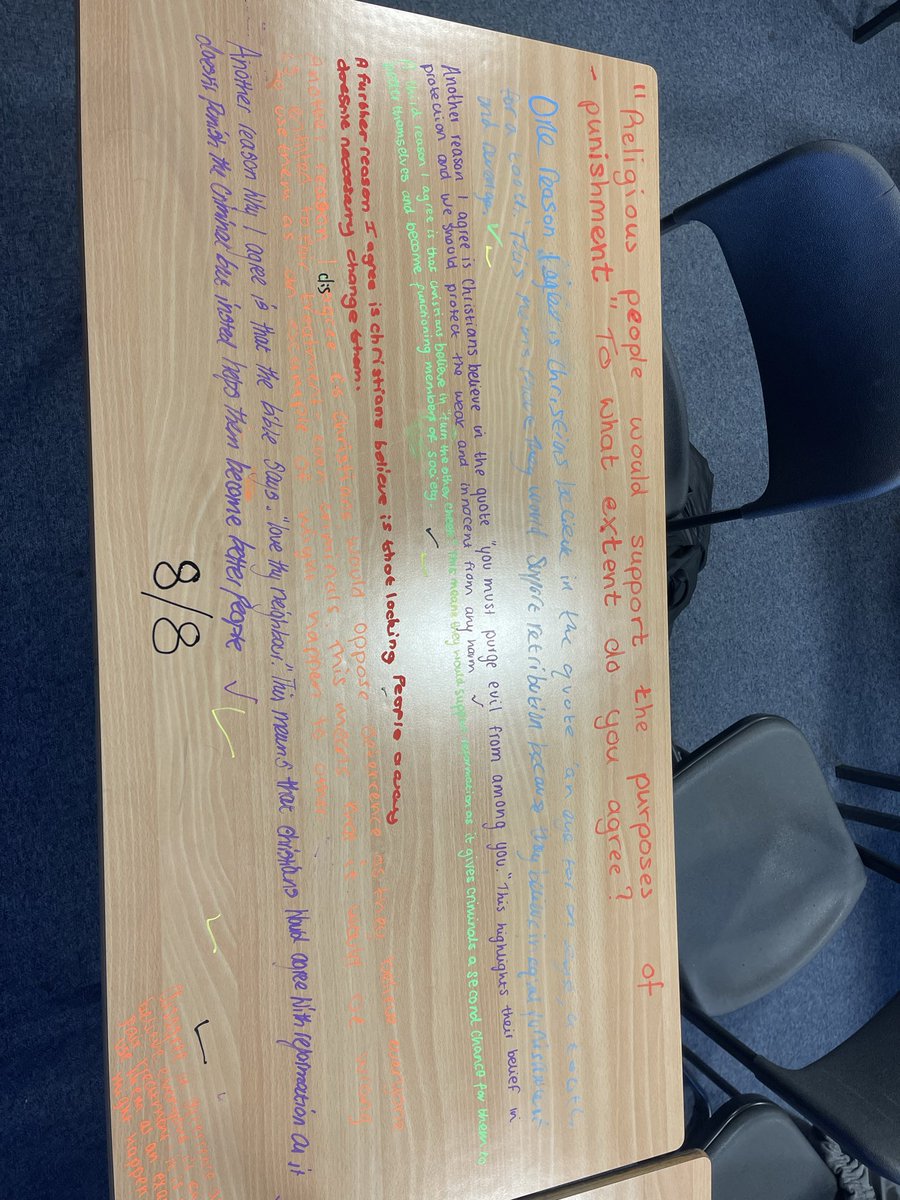 "Religious people would support the purposes of
- punishment" To what extent do you agree?
One reason I agree is Christains believe in the quote 'an eye for an eye, a tooth
for a tooth.' This means they would suppore retribution because they believe in equal punishment
and revenge.
Another reason I agree is Christians believe in the quote "you must purge evil from among you." This highlights their belief in
protection and we should protect the weak and innocent from any harm
A third reason I agree is that christians believe in "turn the other cheek" this means they would support reformation as it gives criminals a second chance for them to
better themselves and become functioning members of society.
A further reason I agree is christians believe is that locking People away
doesnie necessery change them.
Another reason I disagree is Christians would oppose deterence as they believe everyone
is entitled to fair treatment even criminals. This means that it would be wrong
to use them as an example of what might happen to
Another reason why I agree is that the bible says. "love thy neighbour." This means that christians would agree with reformation as it
doesnt Punish the Criminal but insted helps them become better People
8/8
treatment
as an exa
might happen